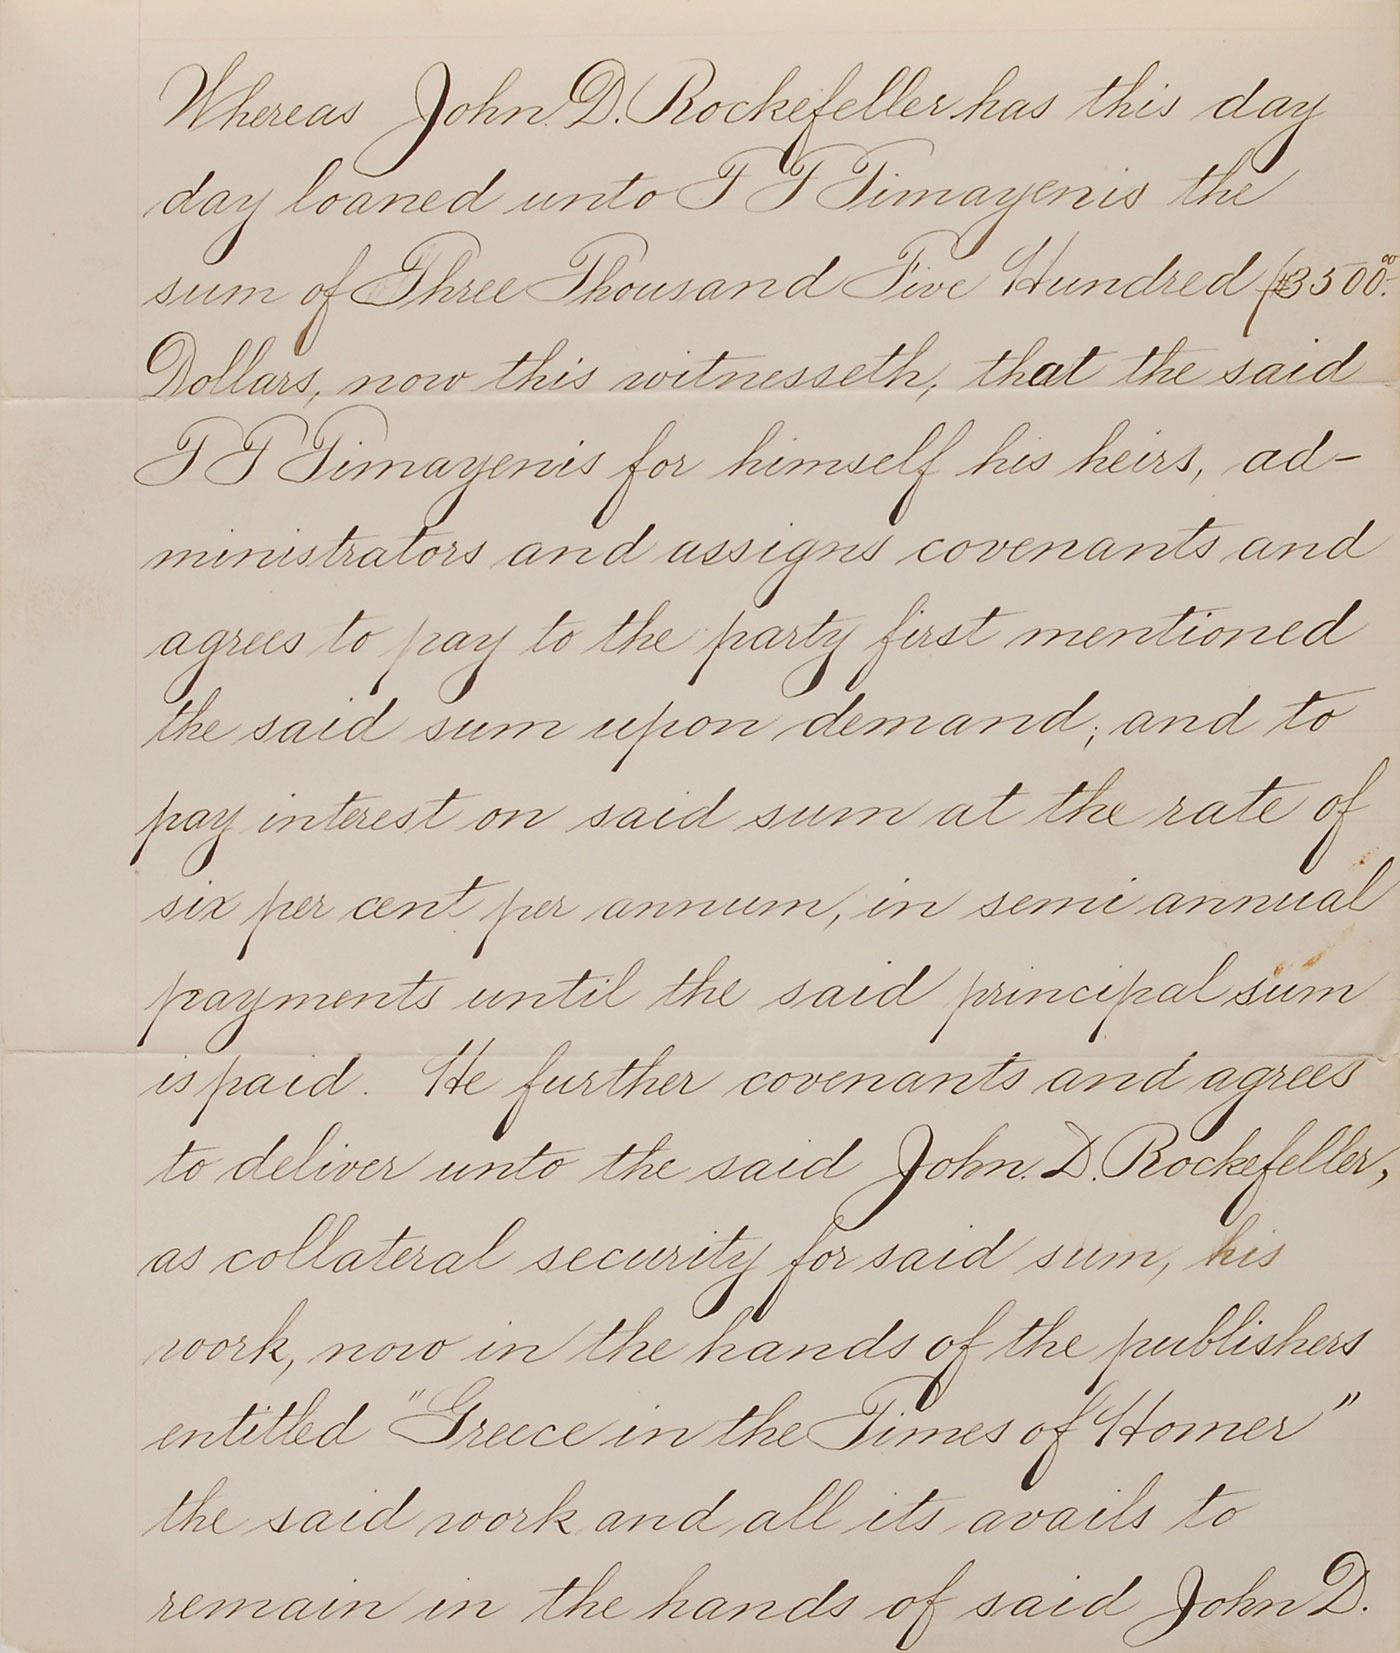 Whereas John D. Rockefeller has this day
day loaned unto T T Timayenis the
sum of Three Thousand Five Hundred ($3500.00
Dollars, now this witnesseth, that the said
T T Timayenis for himself his heirs, ad-
ministrators and assigns covenants and
agrees to pay to the party first mentioned
the said sum upon demand; and to
pay interest on said sum at the rate of
six per cent per annum, in semi annual
payments until the said principal sum
is paid. He further covenants and agrees
to deliver unto the said John. D. Rockefeller,
as collateral security for said sum, his
work, now in the hands of the publishers
entitled "Greece in the Times of Homer"
the said work and all its avails to
remain in the hands of said John D.